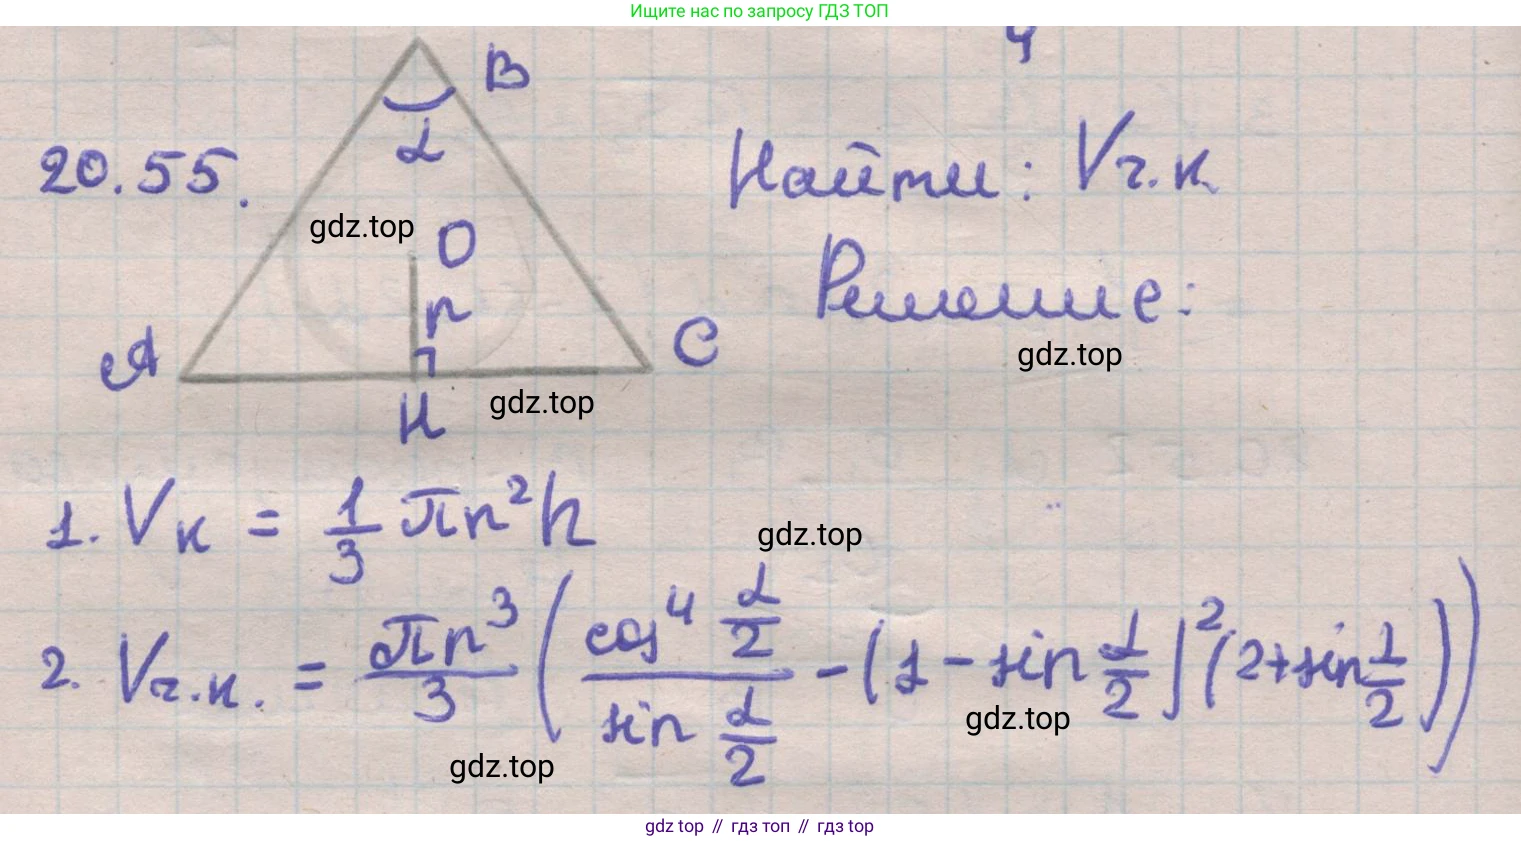 Ищите нас по запросу ГДЗ ТОП
4
B
α
20.55.
Найти: Vч.к.
gdz.top
O
r
Решение:
A
C
gdz.top
gdz.top
H
1. Vк = 1/3 πr²h
gdz.top
2. Vч.к. = πr³/3 (cos⁴ α/2 / sin α/2 - (1 - sin α/2)² (2 + sin α/2))
gdz.top
gdz.top
gdz top // гдз топ // гдз top